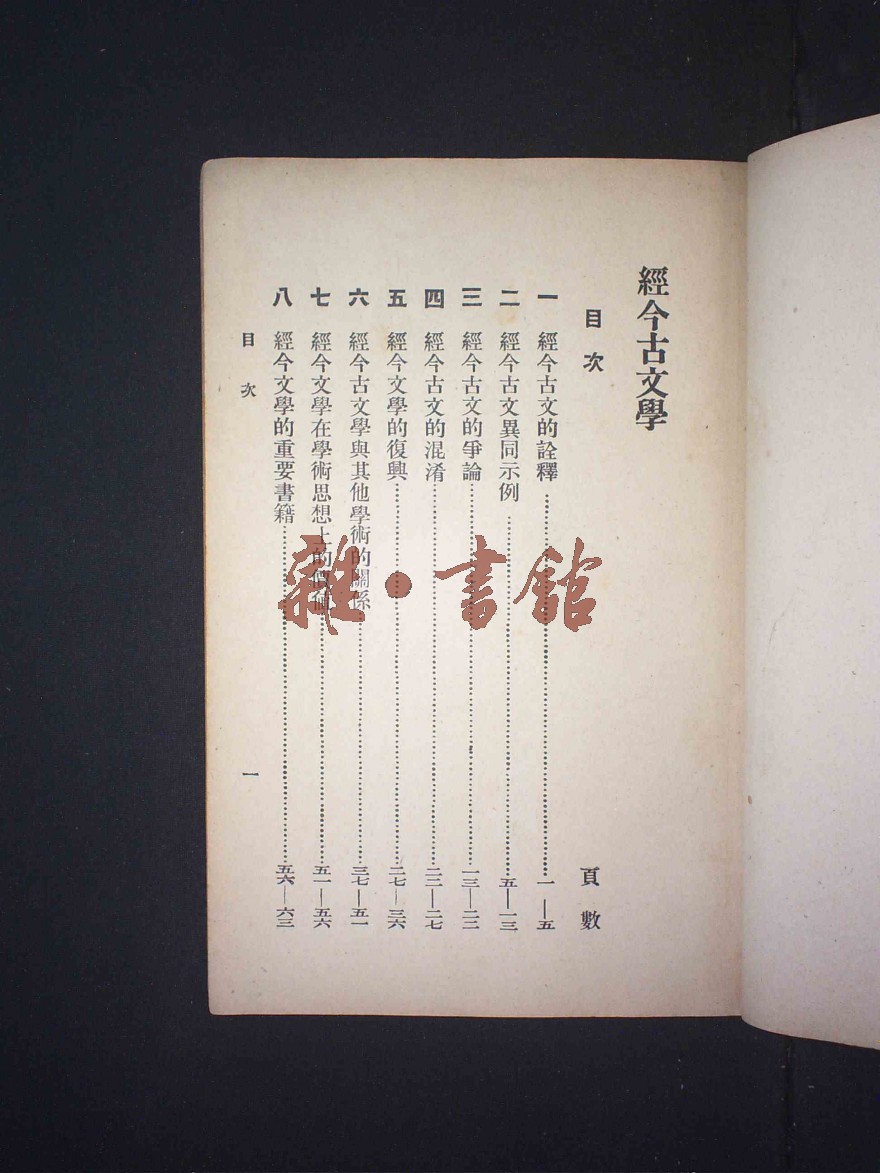 經今古文學
目次
頁數
一 經今古文的詮釋……一—五
二 經今古文異同示例……五—一三
三 經今古文的爭論……一三—二二
四 經今古文的混淆……二二—二七
五 經今文學的復興……二七—三六
六 經今古文學與其他學術的關係……三七—五一
七 經今文學在學術思想上的價值……五一—五六
八 經今文學的重要書籍……五六—六三
目次
一
雜·書館